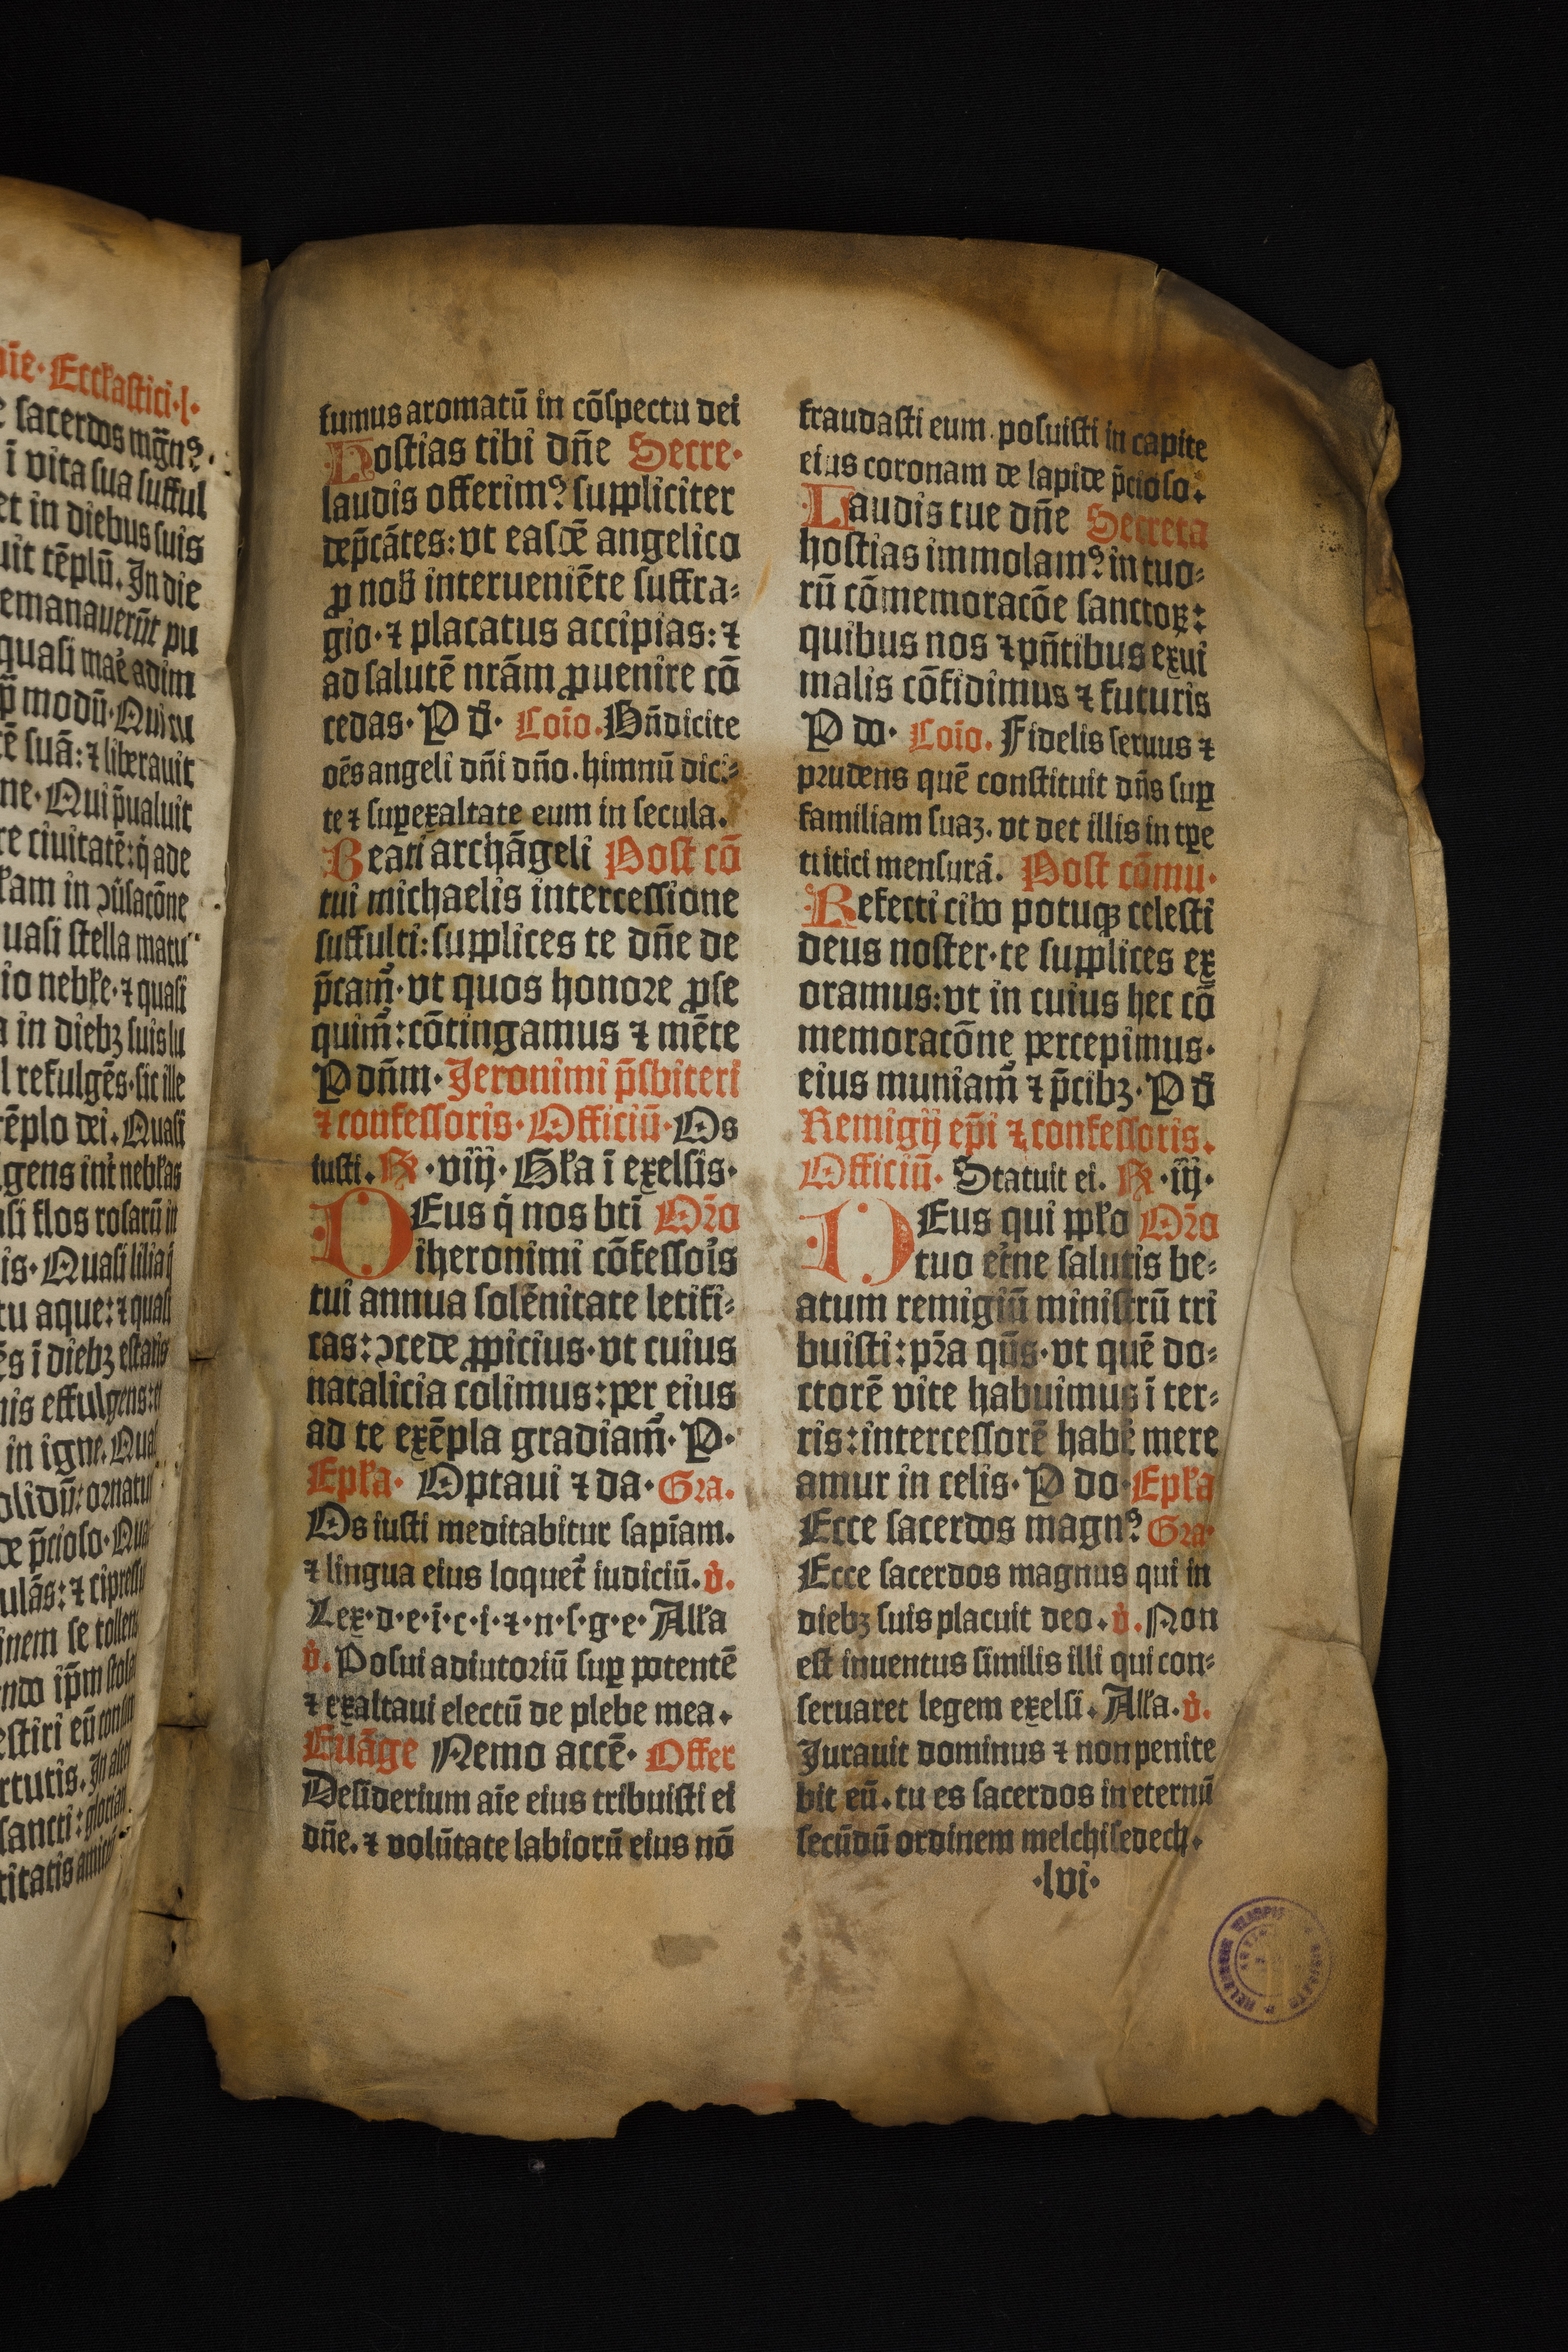 die· Eccłastici·l·
e sacerdos mgn̄ꝰ·
ī vita sua sufful
et in diebus suis
uit tēplū. In die
emanauerūt pu
quasi
p̄ modū· Qui cu
ē suā: ⁊ liberauit
ne· Qui p̄ualuit
re ciuitatē: q̇ ade
uasi stella matu
io nebƚe· ⁊ quasi
in diebꝫ suis lu
l refulgēs· sic ille
tēplo dei. Quasi
gens int̄ nebƚas
si flos rosarū in
is· Quasi lilia
tu aque: ⁊ quasi
ēs ī diebꝫ estatis
is effulgens:
in igne. Qua
olidū: ornatū
de p̄cioso· Qua
ulās: ⁊ cipressu
inem se tollens
ndo ip̄m stola
estiri eū
rtutis. In
sancti: gloriam
titatis
fumus aromatū in cōspectu dei
Hostias tibi dn̄e Secre·
laudis offerimꝰ suppliciter
dep̄cātes: vt easdē angelico
ꝓ nob̄ interueniēte suffra⸗
gio· ⁊ placatus accipias: ⁊
ad salutē nrām ꝓuenire cō
cedas· P d̄· Cōio. Bn̄dicite
oēs angeli dn̄i dn̄o. himnū dici⸗
te ⁊ suꝑexaltate eum in secula.
Beati archāgeli Post cō
tui michaelis intercessione
suffulti: supplices te dn̄e de
p̄cam̄· vt quos honore ꝓse
quim̄: cōtingamus ⁊ mēte
P dn̄m· Jeronimi p̄sbiteri
⁊ confessoris· Officiū· Os
iusti. ℟ ·viij· Gƚa ī exelsis·
DEus q̇ nos bt̄i Or̄o
iheronimi cōfessoꝛ̄is
tui annua solēnitate letifi⸗
cas: ↄcede ꝓpicius· vt cuius
natalicia colimus: per eius
ad te exēpla gradiam̄· P·
Epƚa· Optaui ⁊ da· Gra.
Os iusti meditabitur sapīam.
⁊ lingua eius loquet̄ iudiciū. v̇.
Lex·d·e·i·c·i·⁊·n·s·g·e· Alƚa
v̇. Posui adiutoriū suꝑ potentē
⁊ exaltaui electū de plebe mea.
Euāge Nemo accē· Offer
Desiderium aīe eius tribuisti ei
dn̄e. ⁊ volūtate labiorū eius nō
fraudasti eum. posuisti in capite
eius coronam de lapide p̄cioso.
Laudis tue dn̄e Secreta
hostias immolamꝰ in tuo⸗
rū cōmemoracōe sanctoꝝ:
quibus nos ⁊ pn̄tibus exui
malis cōfidimus ⁊ futuris
P do· Cōio. Fidelis seruus ⁊
prudens quē constituit dn̄s suꝑ
familiam suaꝫ. vt det illis in tꝑe
tritici mensurā. Post cōmu·
Refecti cibo potuqꝫ celesti
deus noster· te supplices ex
oramus: vt in cuius hec cō
memoracōne percepimus·
eius muniam̄ ⁊ p̄cibꝫ· P d̄
Remigij ep̄i ⁊ confessoris.
Officiū· Statuit ei. ℟ ·iij·
DEus qui ppƚo Or̄o
tuo et̄ne salutis be⸗
atum remigiū ministrū tri
buisti: pr̄a qūs· vt quē do⸗
ctorē vite habuimus ī ter⸗
ris: intercessorē habē mere
amur in celis· P do· Epƚa
Ecce sacerdos magnꝰ Gra·
Ecce sacerdos magnus qui in
diebꝫ suis placuit deo. v̇. Non
est inuentus similis illi qui con⸗
seruaret legem exelsi. Alƚa. v̇.
Jurauit dominus ⁊ non penite
bit eū. tu es sacerdos in eternū
secūdū ordinem melchisedech.
·lvi·